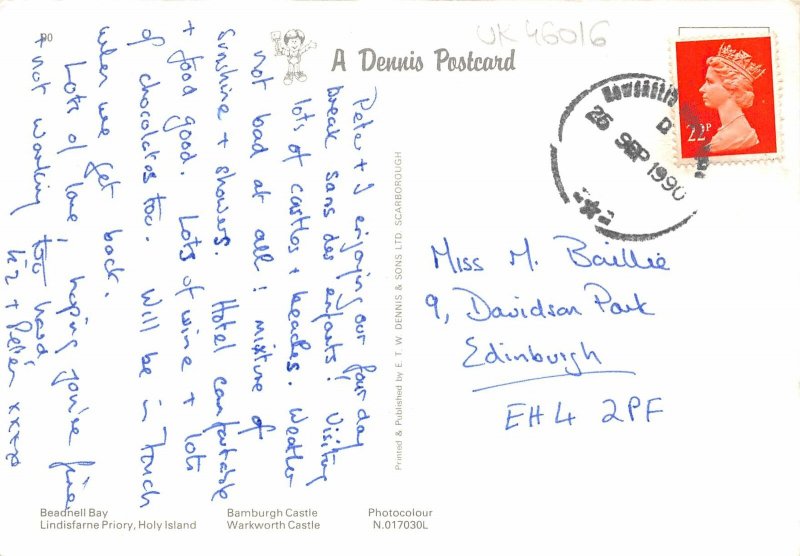 UK 46016
A Dennis Postcard
22P
25 SEP 1990
Peter + I enjoying our four day
break sans des enfants! Visiting
lots of castles + beaches. Weather
not bad at all! mixture of
sunshine + showers. Hotel comfortable
+ food good. Lots of wine + lots
of chocolates too. Will be in touch
when we get back.
Lots of love, hoping you're fine
+ not working too hard
Liz + Peter xxxx
Printed & Published by E. T. W. DENNIS & SONS LTD. SCARBOROUGH
Miss M. Baillie
9, Davidson Park
Edinburgh
EH4 2PF
Beadnell Bay
Lindisfarne Priory, Holy Island
Bamburgh Castle
Warkworth Castle
Photocolour
N.017030L